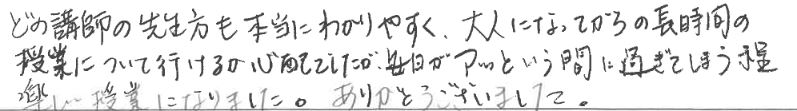 どの講師の先生方も本当にわかりやすく、大人になってからの長時間の
授業について行けるか心配でしたが、毎日がアッという間に過ぎてしまう程
楽しい授業になりました。ありがとうございました。